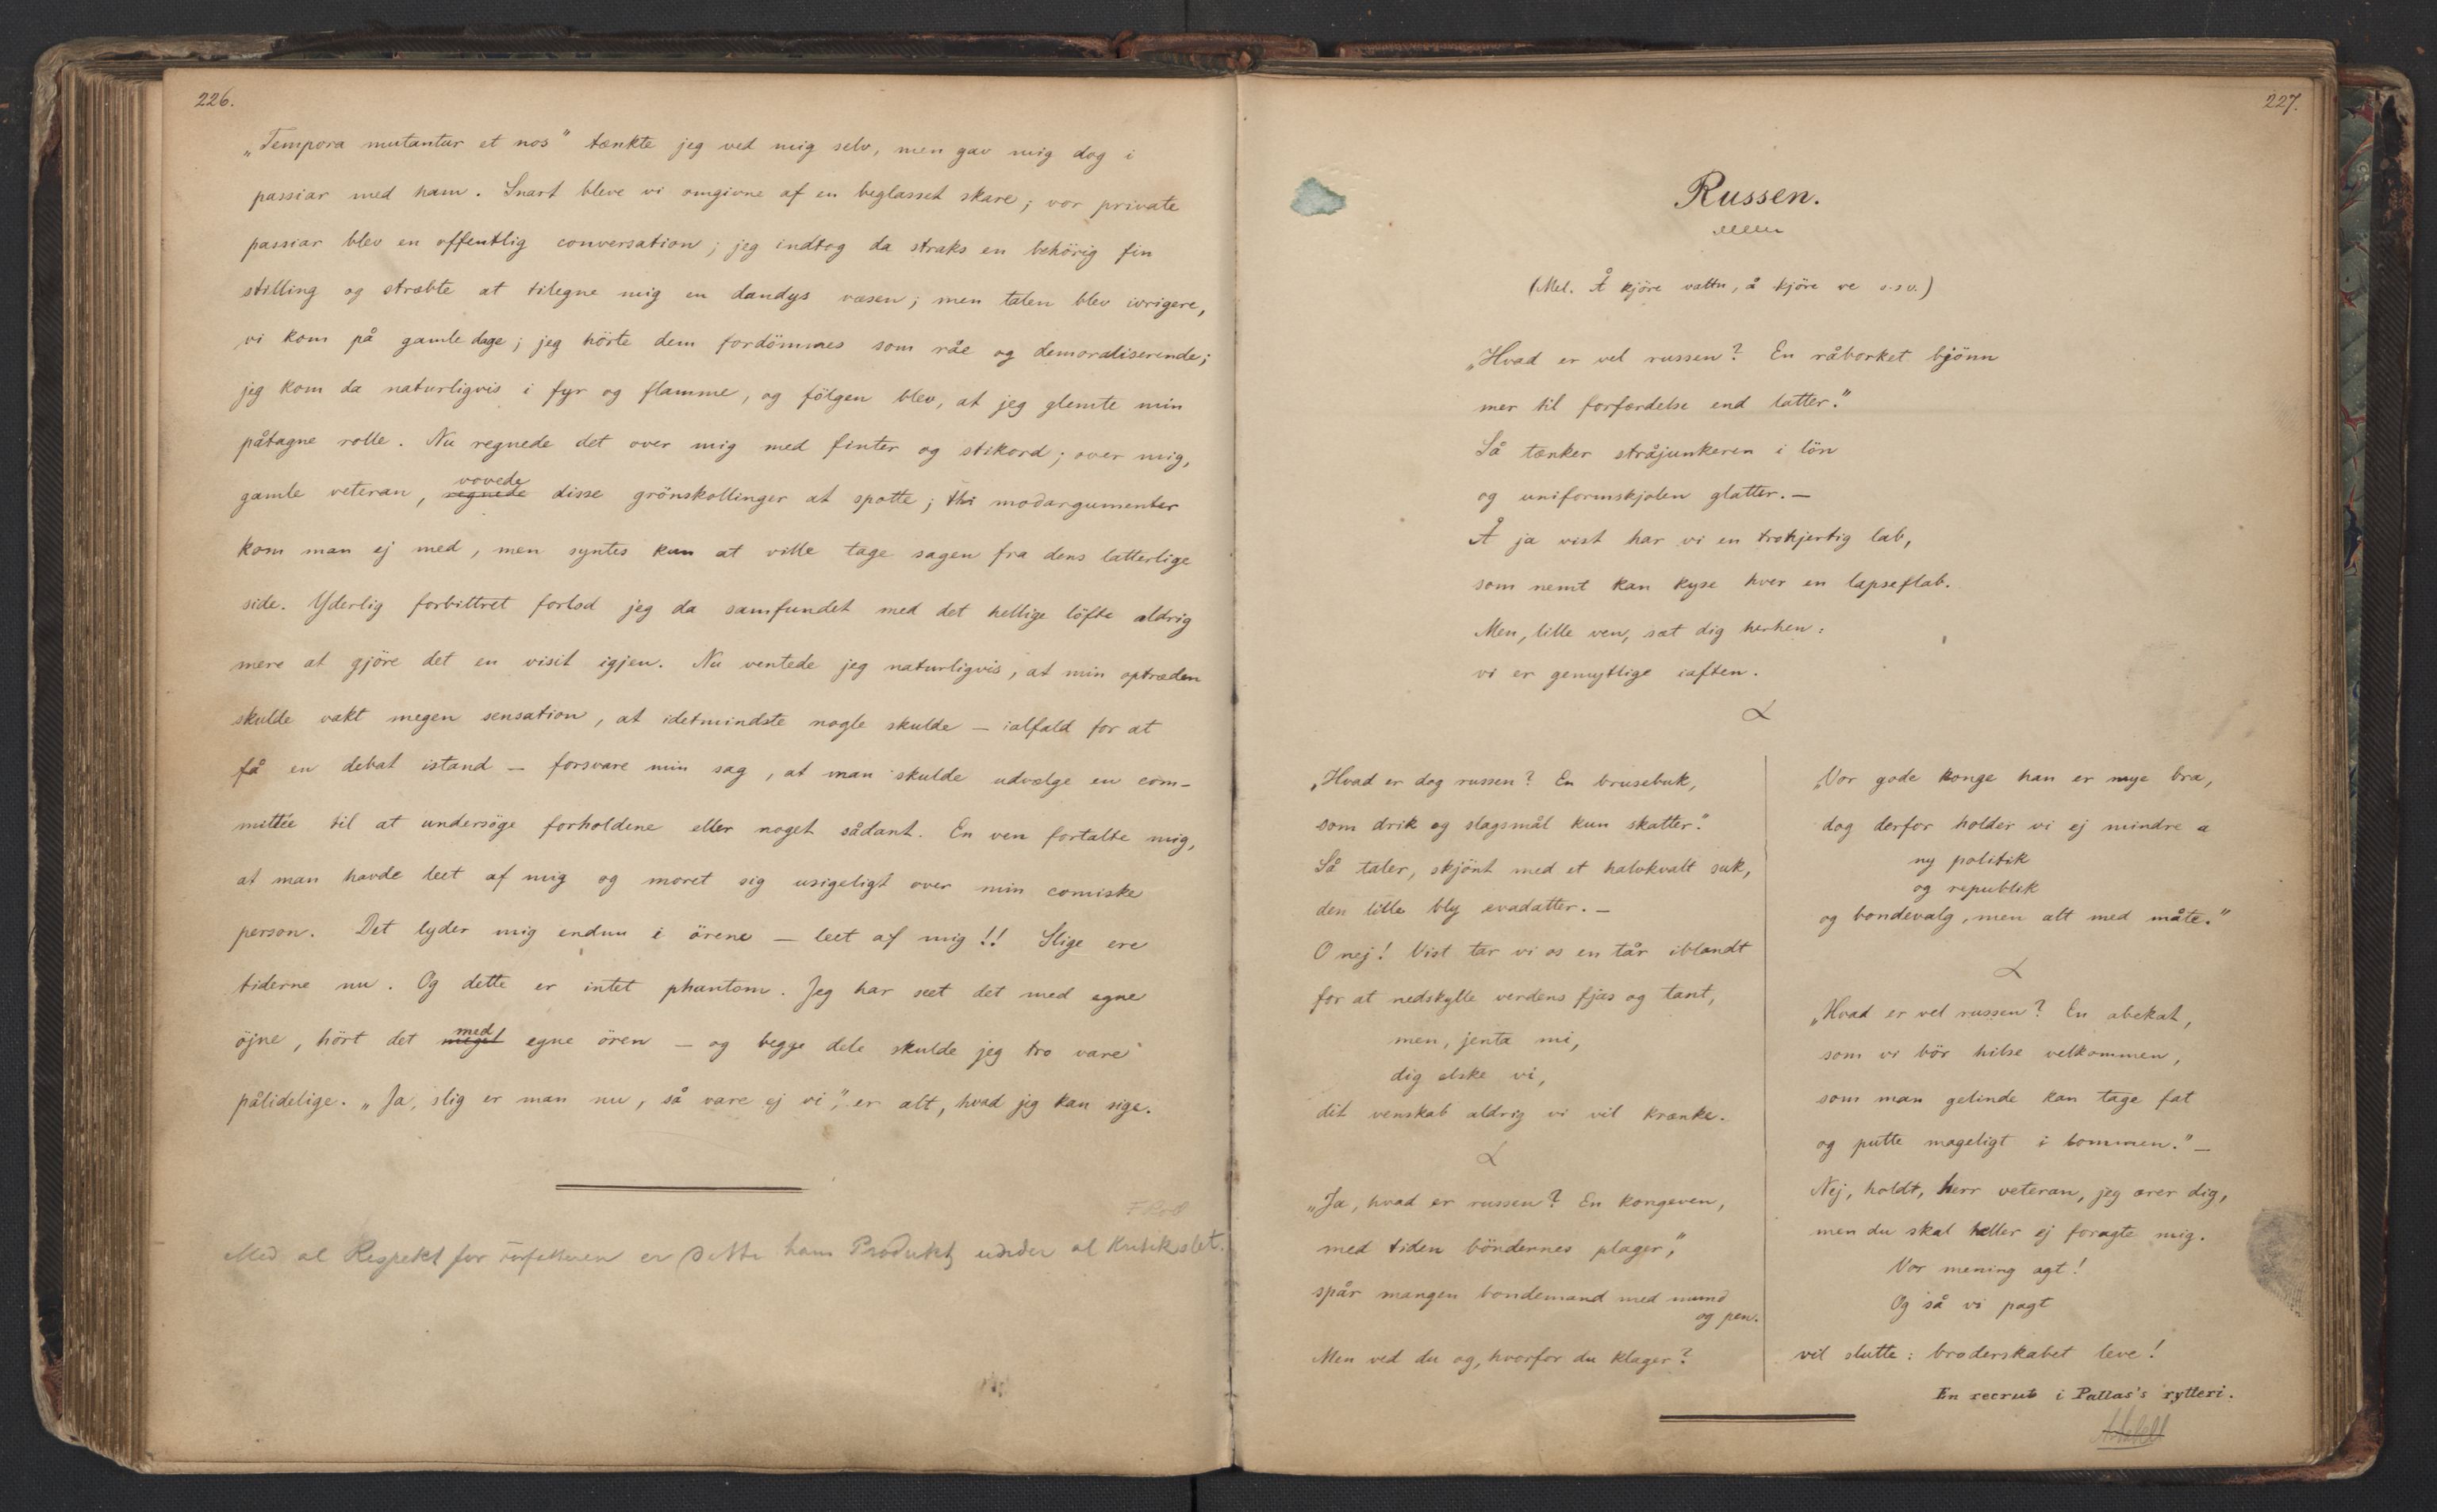 226.
„Tempora mutantur et nos" tænkte jeg ved mig selv, men gav mig dog i
passiar med ham. Snart bleve vi omgivne af en beglasset skare; vor private
passiar blev en offentlig conversation; jeg indtog da straks en behörig fin
stilling og stræbte at tilegne mig en dandys væsen; men talen blev ivrigere,
vi kom på gamle dage; jeg hörte dem fordömmes som råe og demoraliserende;
jeg kom da naturligvis i fyr og flamme, og fölgen blev, at jeg glemte min
påtagne rolle. Nu regnede det over mig med finter og stikord; over mig,
vovede
gamle veteran, regnede disse grönskollinger at spotte; thi modargumenter
kom man ej med, men syntes kun at ville tage sagen fra dens latterlige
side. Yderlig forbittret forlod jeg da samfundet med det hellige löfte aldrig
mere at gjöre det en visit igjen. Nu ventede jeg naturligvis, at min optræden
skulde vakt megen sensation, at idetmindste nogle skulde – ialfald for at
få en debat istand – forsvare min sag, at man skulde udvælge en com-
mittée til at undersöge forholdene eller noget sådant. En ven fortalte mig,
at man havde leet af mig og moret sig usigeligt over min comiske
person. Det lyder mig endnu i örene – leet af mig!! Slige ere
tiderne nu. Og dette er intet phantom. Jeg har seet det med egne
med
öjne, hört det meget egne ören – og begge dele skulde jeg tro være
pålidelige. „Ja, slig er man nu, så vare ej vi", er alt, hvad jeg kan sige.
Med al Respekt for Forfatteren er dette hans Produkt under al Kritik slet.
227.
Russen.
(Mel. Å kjöre vattn, å kjöre ve o.s.v.)
„Hvad er vel russen? En råbarket bjönn
mer til forfærdelse end latter."
Så tænker stråjunkeren i lön
og uniformskjolen glatter. –
Å ja vist har vi en trohjertig lab,
som nemt kan kyse hver en lapseflab.
Men, lille ven, sæt dig herhen:
vi er gemytlige iaften.
„Hvad er dog russen? En brusebuk,
som drik og slagsmål kun skatter."
Så taler, skjönt med et halvkvalt suk,
den lille bly evadatter. –
O nej! Vist tar vi os en tår iblandt
for at nedskylle verdens fjas og tant,
men, jenta mi,
dig elske vi,
dit venskab aldrig vi vil krænke.
„Ja, hvad er russen? En kongeven,
med tiden böndernes plager,"
spår mangen bondemand med mund
og pen.
Men ved du og, hvorfor du klager?
Vor gode konge han er mye bra,
dog derfor holder vi ej mindre a
ny politik
og republik
og bondevalg, men alt med måte."
„Hvad er vel russen? En abekat,
som vi bör hilse velkommen,
som man gelinde kan tage fat
og putte mageligt i lommen." –
Nej, holdt, herr veteran, jeg ærer dig,
men du skal heller ej foragte mig.
Vor mening agt!
Og så vi pagt
vil slutte: broderskabet leve!
En recrut i Pallas's rytteri.